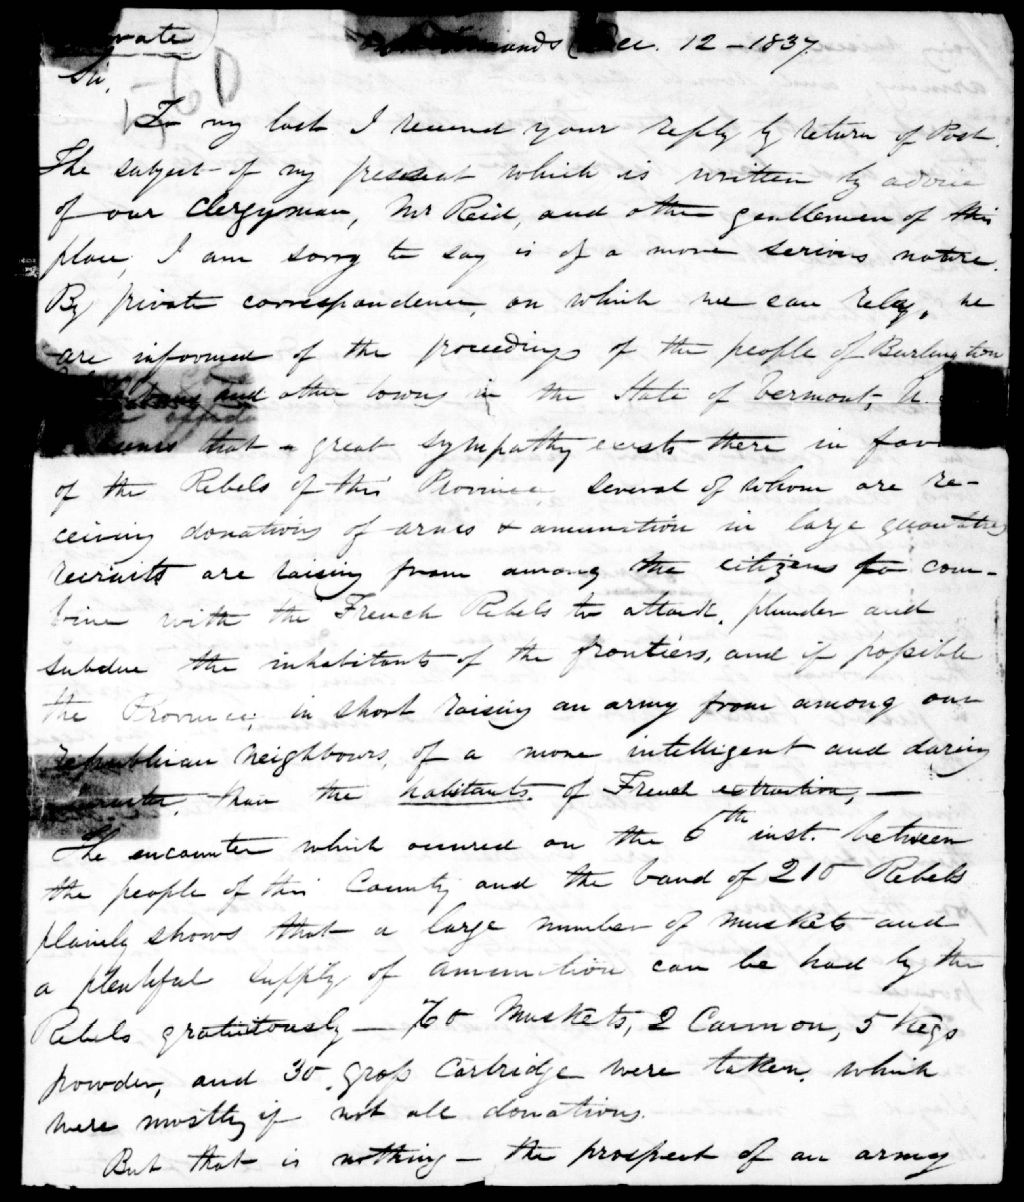 Private St Armands Dec. 12 - 1837.
Sir,
To my last I received your reply by return of Post.
The subject of my present which is written by advice
of our Clergyman, Mr Reid, and other gentlemen of this
place, I am sorry to say is of a more serious nature.
By private correspondence, on which we can relay, we
are informed of the proceedings of the people of Burlington
and other towns in the State of Vermont, U.
that a great sympathy exists there in favour
of the Rebels of this Province. Several of whom are re-
ceiving donations of arms & amunition in large quantities
recruits are raising from among the citizens to com-
bine with the French Rebels to attack, plunder and
subdue the inhabitants of the frontiers, and if possible
the Province, in short raising an army from among our
republican neighbours, of a more intelligent and daring
character, than the habitants of French extraction, —
The encounter which occured on the 6th inst. between
the people of this County and the band of 210 Rebels
plainly shows that a large number of muskets and
a plentiful supply of amunition can be had by the
Rebels gratuitously — 70 Muskets, 2 Cannon, 5 Kegs
powder, and 30 gross Cartridge were taken, which
were mostly if not all donations.
But that is nothing — the prospect of an army